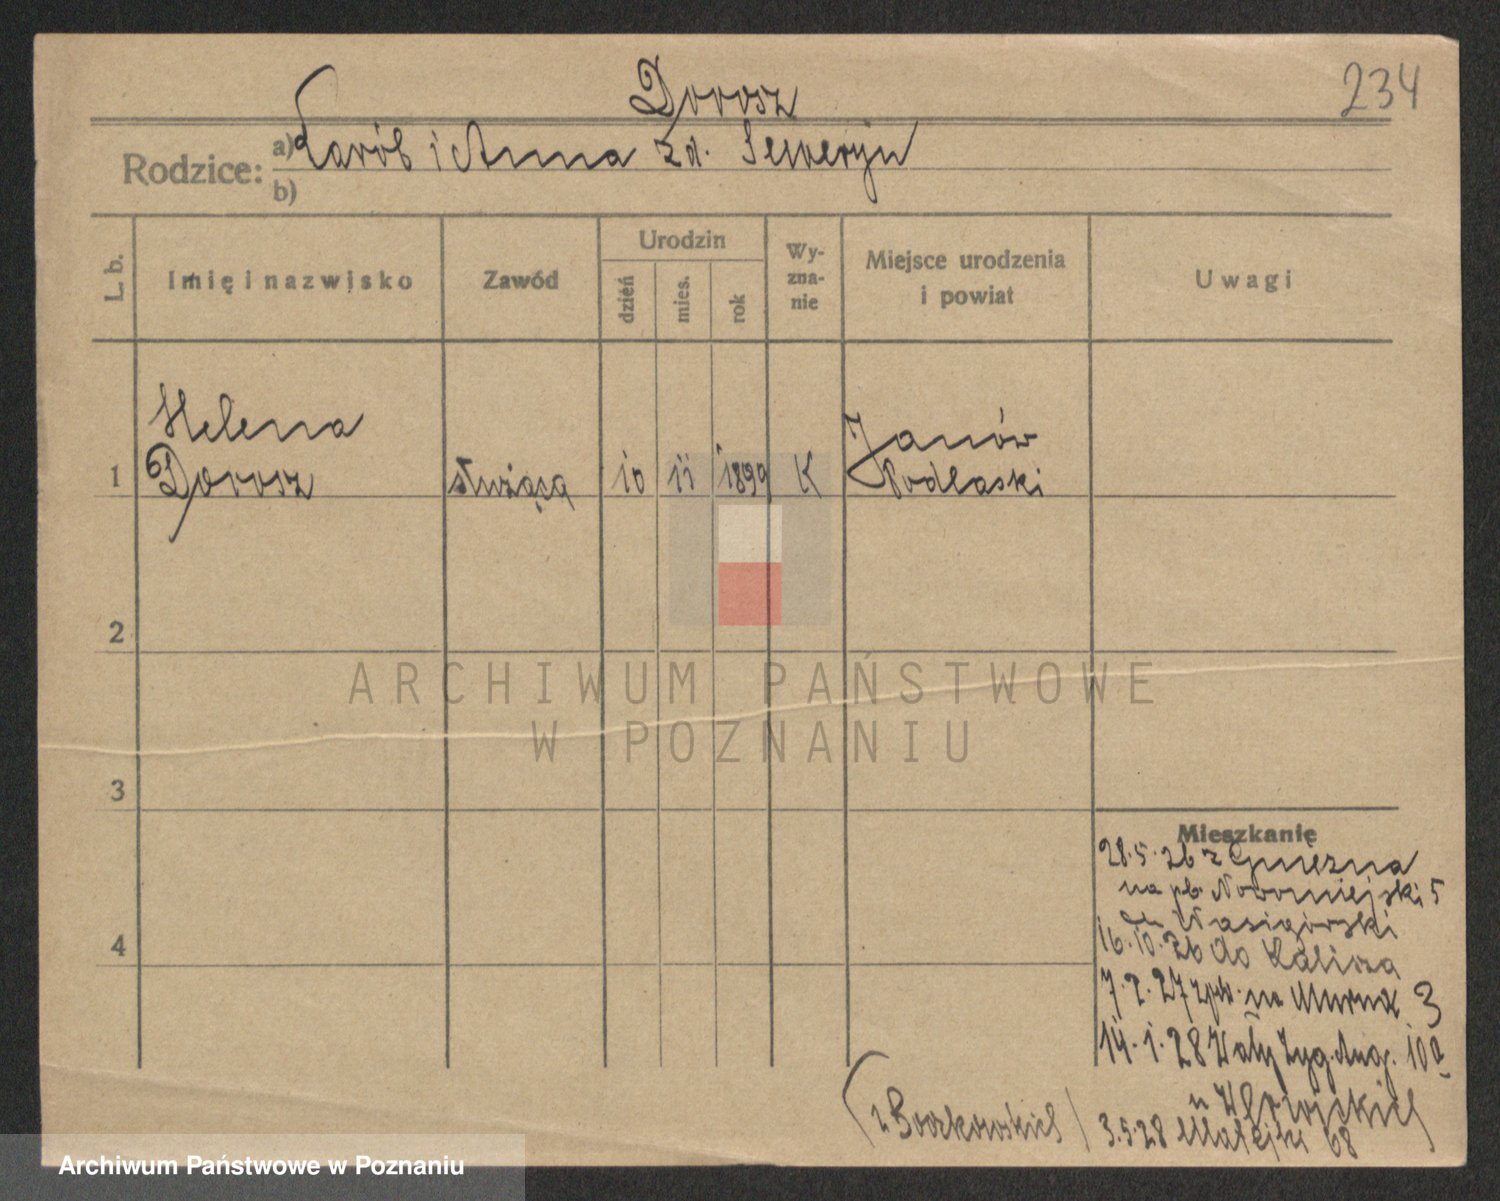 234
Dorosz
Rodzice: a) Karól i Anna zd. Seweryn
b)
L. b.
Imię i nazwisko
Zawód
Urodzin
dzień
mies.
rok
Wy-
zna-
nie
Miejsce urodzenia
i powiat
Uwagi
Helena
1 Dorosz służąca 10 11 1899 K Janów
Podlaski
2
ARCHIWUM PAŃSTWOWE
W POZNANIU
3
Mieszkanie
28.5.26 z Gniezna
na pl. Nowomiejski 5
4
16.10.26 do Kalisza
7.2.27 na 3
14.1.28 Wały Zyg. Aug. 10a
u
3.5.28 Matejki 68
Archiwum Państwowe w Poznaniu